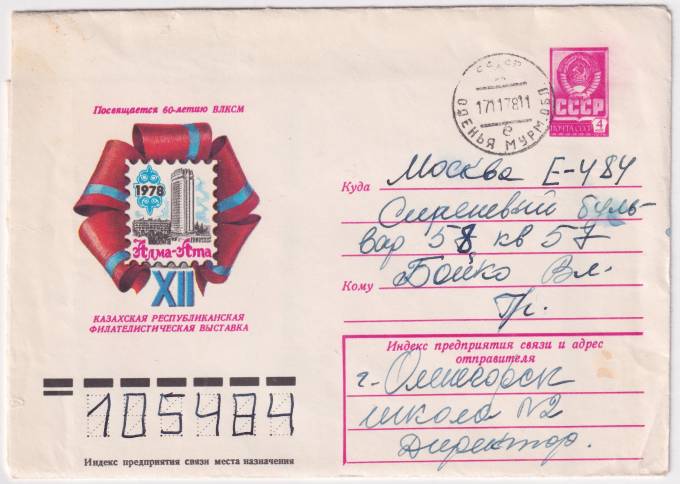 Посвящается 60-летию ВЛКСМ
1978
Алма-Ата
XII
КАЗАХСКАЯ РЕСПУБЛИКАНСКАЯ
ФИЛАТЕЛИСТИЧЕСКАЯ ВЫСТАВКА
СССР
1711781
ОЛЕНЬЯ МУРМ. ОБЛ.
е
СССР
ПОЧТА СССР 4
Куда Москва Е-484
Сиреневый буль-
вар 58 кв 57
Кому Бойко Вл.
Гр.
Индекс предприятия связи и адрес
отправителя
г. Оленегорск
школа №2
Директор.
105484
Индекс предприятия связи места назначения